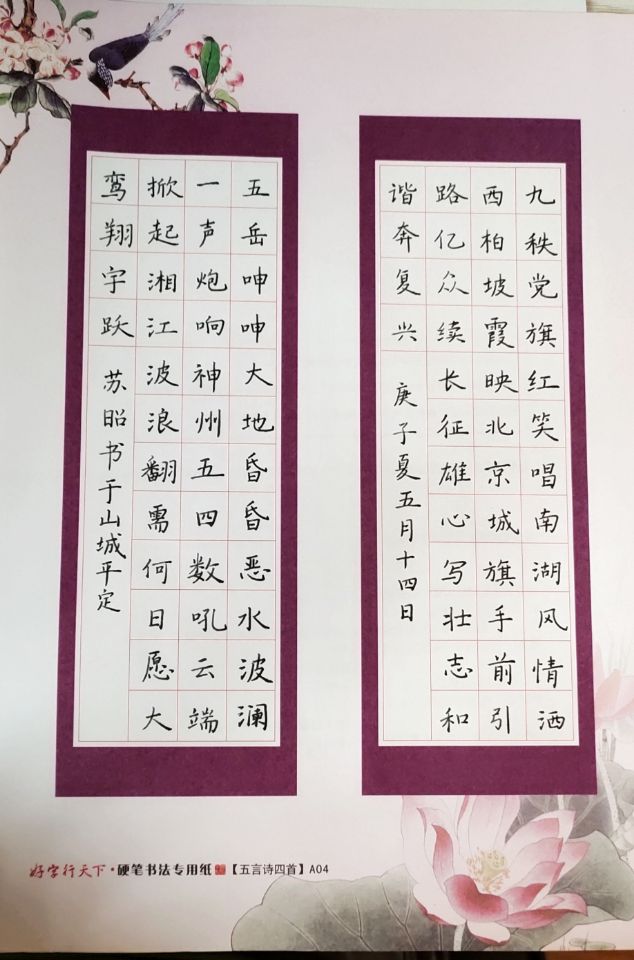 九秩党旗红笑唱南湖风情洒
西柏坡霞映北京城旗手前引
路亿众续长征雄心写壮志和
谐奔复兴
庚子夏五月十四日
五岳呻呻大地昏昏恶水波澜
一声炮响神州五四数吼云端
掀起湘江波浪翻需何日愿大
鸾翔宇跃
苏昭书于山城平定
好字行天下·硬笔书法专用纸【五言诗四首】A04